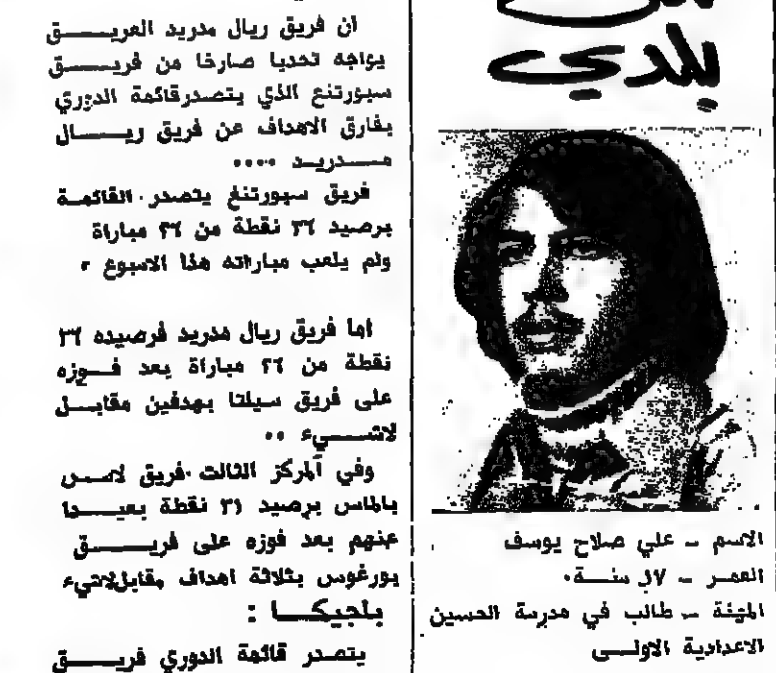 بلدي
الاسم ـ علي صلاح يوسف
العمر ـ ١٧ سنـــة٠
المهنة ـ طالب في مدرسة الحسين
الاعدادية الاولــى
ان فريق ريال مدريد العريـــــق
يواجه تحديا صارخا من فريــــــق
سبورتنغ الذي يتصدرقائمة الدوري
بفارق الاهداف عن فريق ريـــــال
مـــدريــد ٠٠٠٠
فريق سبورتنغ يتصدر القائمــة
برصيد ٣٦ نقطة من ٢٦ مباراة
ولم يلعب مباراته هذا الاسبوع ٠
اما فريق ريال مدريد فرصيده ٣٦
نقطة من ٢٦ مباراة بعد فـــوزه
على فريق سيلتا بهدفين مقابـــل
لاشـــــيء ٠٠
وفي المركز الثالث فريق لاســـس
بالماس برصيد ٣١ نقطة بعيـــــدا
عنهم بعد فوزه على فريــــــق
بورغوس بثلاثة اهداف مقابل لاشيء
بلجيكـــــا :
يتصدر قائمة الدوري فريـــــــق